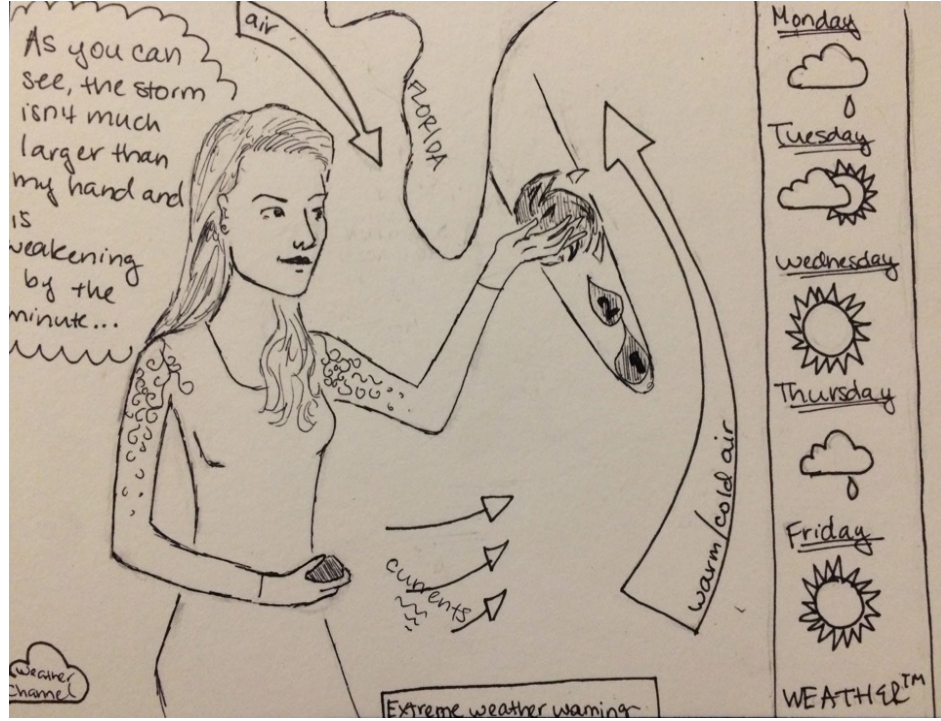 As you can
see, the storm
isn't much
larger than
my hand and
is
weakening
by the
minute...
air
FLORIDA
warm/cold air
currents
Weather
Channel
Extreme weather warning
Monday
Tuesday
Wednesday
Thursday
Friday
WEATHER™